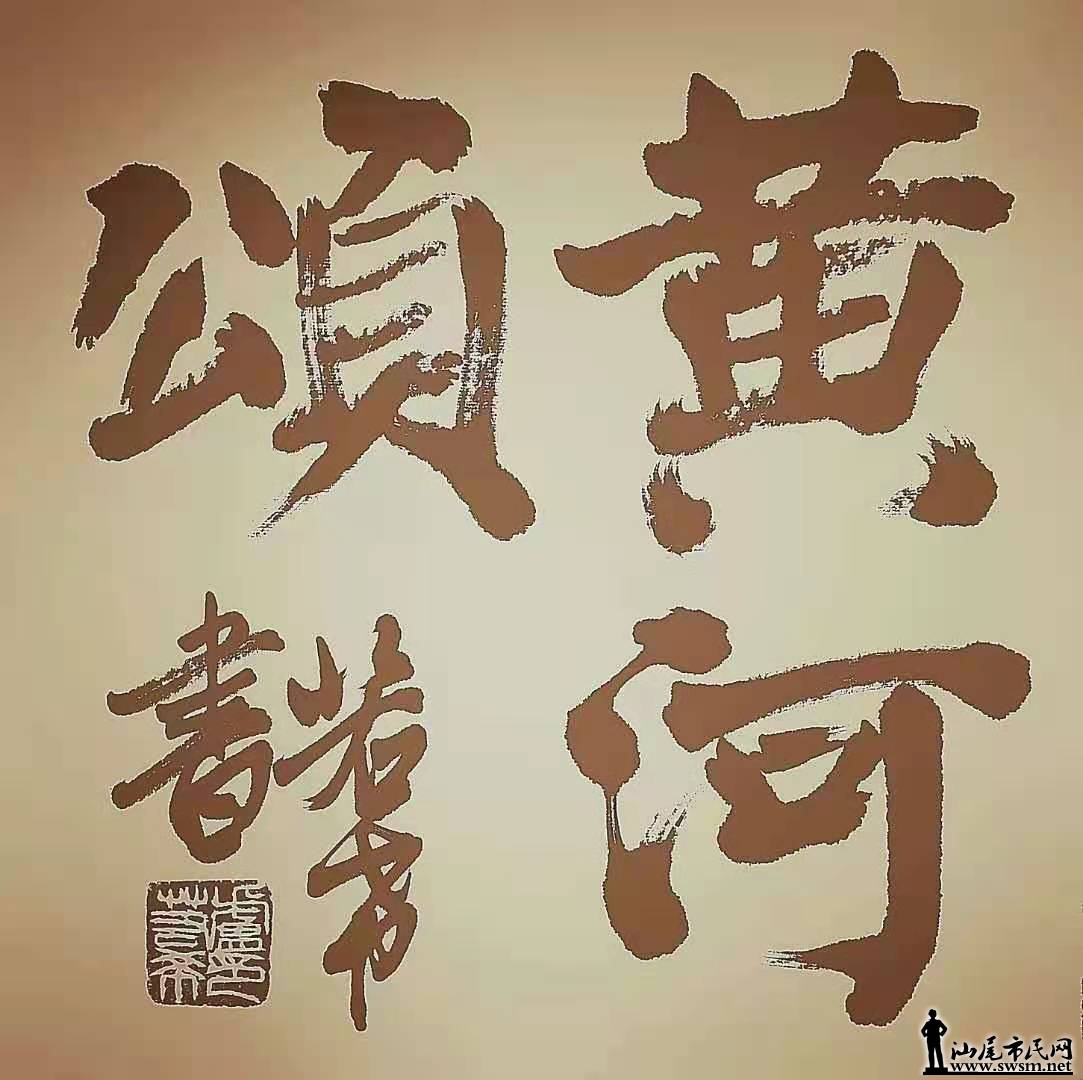 黄河
頌
若希
書
汕尾市民网
www.swsm.net